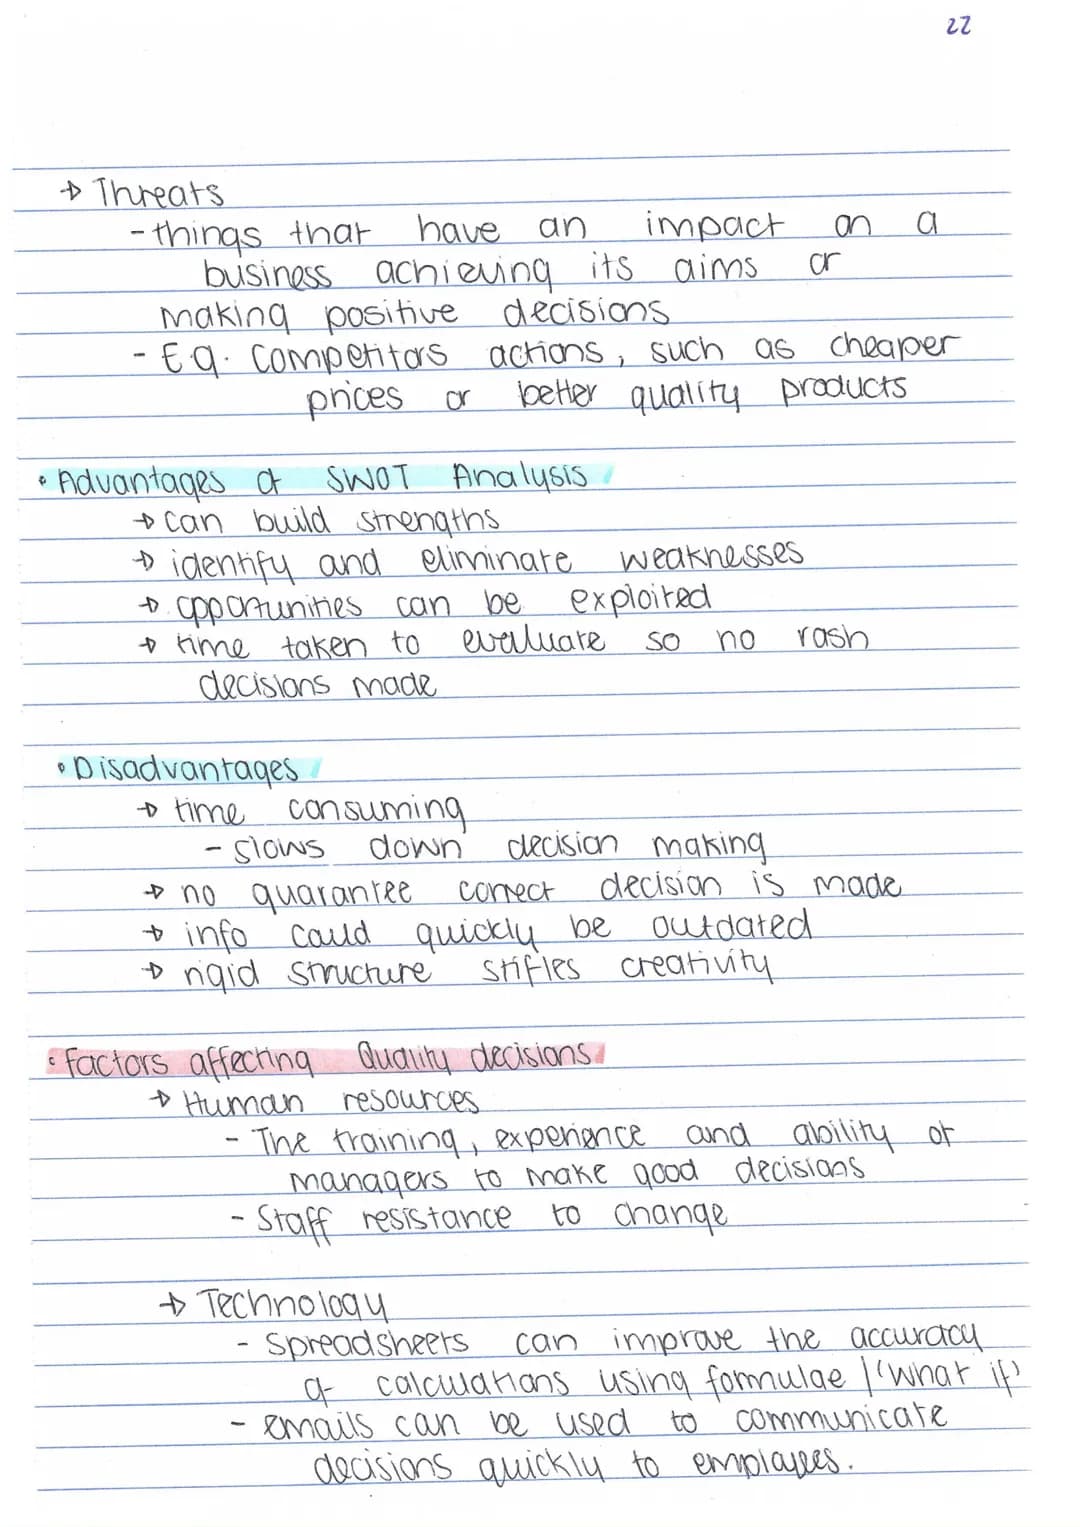 22
→ Threats
- things that have an impact on a
business achieving its aims or
making positive decisions
- E.g. Competitors actions, such as cheaper
prices or better quality products
• Advantages of SWOT Analysis
→ can build strengths
→ identify and eliminate weaknesses
→ opportunities can be exploited
→ time taken to evaluate so no rash
decisions made
• Disadvantages
→ time consuming
- slows down decision making
→ no guarantee correct decision is made
→ info could quickly be outdated
→ rigid structure stifles creativity
• Factors affecting Quality decisions
→ Human resources
- The training, experience and ability of
managers to make good decisions
- Staff resistance to change
→ Technology
- Spreadsheets can improve the accuracy
of calculations using formulae / 'what if'
- emails can be used to communicate
decisions quickly to employees.